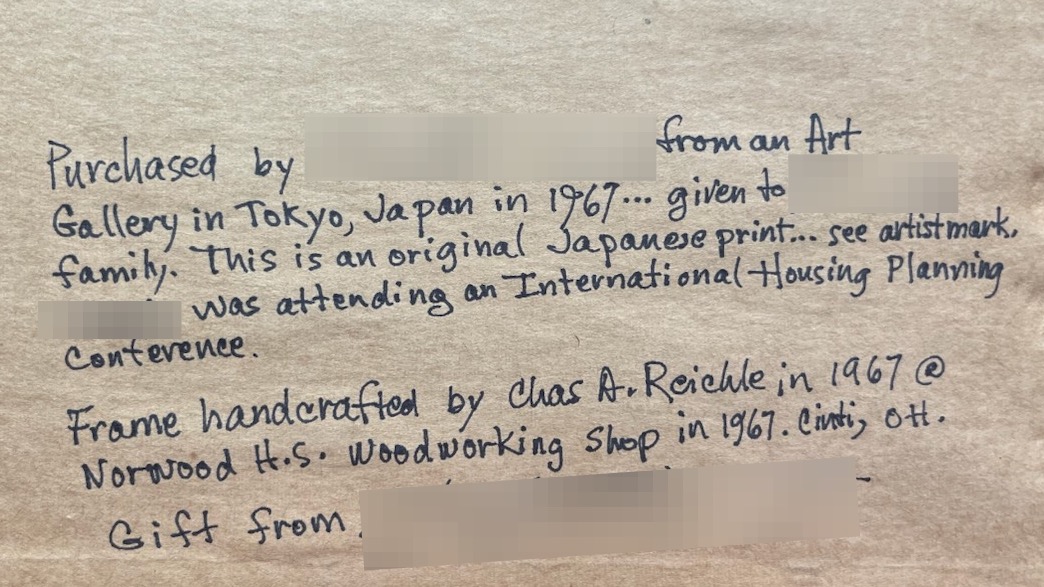 Purchased by from an Art
Gallery in Tokyo, Japan in 1967... given to
family. This is an original Japanese print... see artist mark.
was attending an International Housing Planning
Conference.
Frame handcrafted by Chas A. Reichle in 1967 @
Norwood H.S. Woodworking Shop in 1967. Cinti, OH.
Gift from